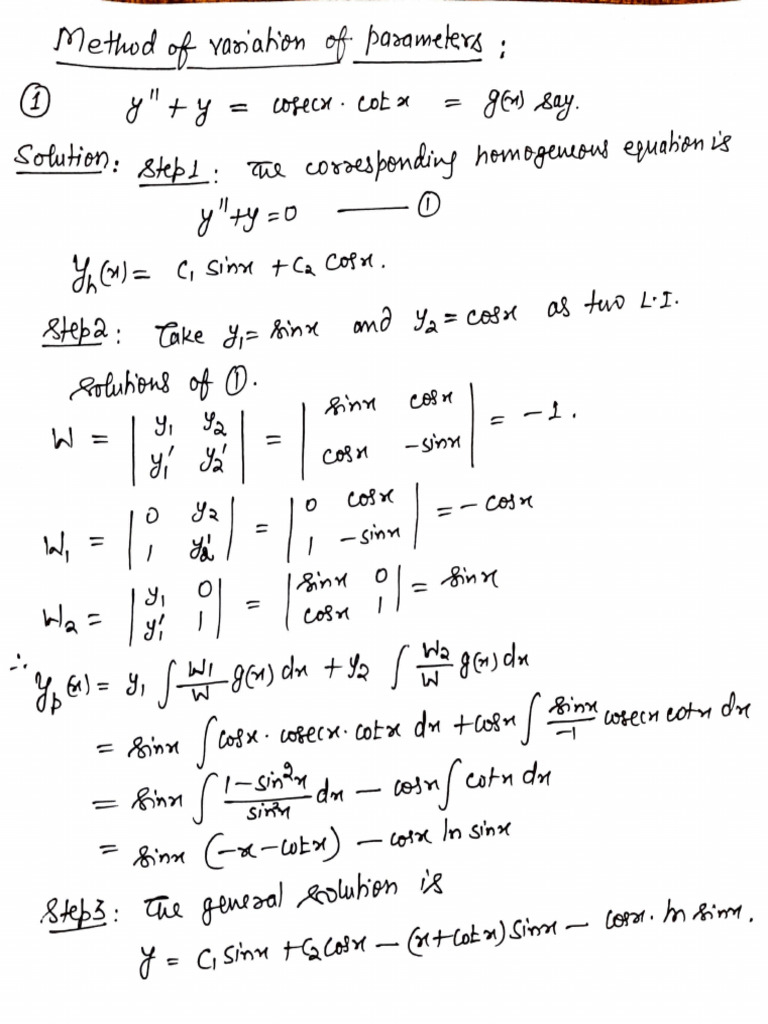 Method of variation of parameters :
① y'' + y = cosecx · cot x = g(x) say.
Solution : Step1 : The corresponding homogeneous equation is
y''+y=0 —— ①
y_h(x) = c₁ sinx + c₂ cosx.
Step2 : Take y₁ = sinx and y₂ = cosx as two L.I.
solutions of ①.
W = | y₁ y₂ ; y₁' y₂' | = | sinx cosx ; cosx -sinx | = -1.
W₁ = | 0 y₂ ; 1 y₂' | = | 0 cosx ; 1 -sinx | = - cosx
W₂ = | y₁ 0 ; y₁' 1 | = | sinx 0 ; cosx 1 | = sinx
∴ y_p(x) = y₁ ∫ W₁/W g(x) dx + y₂ ∫ W₂/W g(x) dx
= sinx ∫ cosx · cosecx · cotx dx + cosx ∫ sinx/-1 cosecx cotx dx
= sinx ∫ 1-sin²x/sin²x dx - cosx ∫ cotx dx
= sinx (-x-cotx) - cosx ln sinx
Step3 : The general solution is
y = c₁ sinx + c₂ cosx - (x+cotx) sinx - cosx · ln sinx.